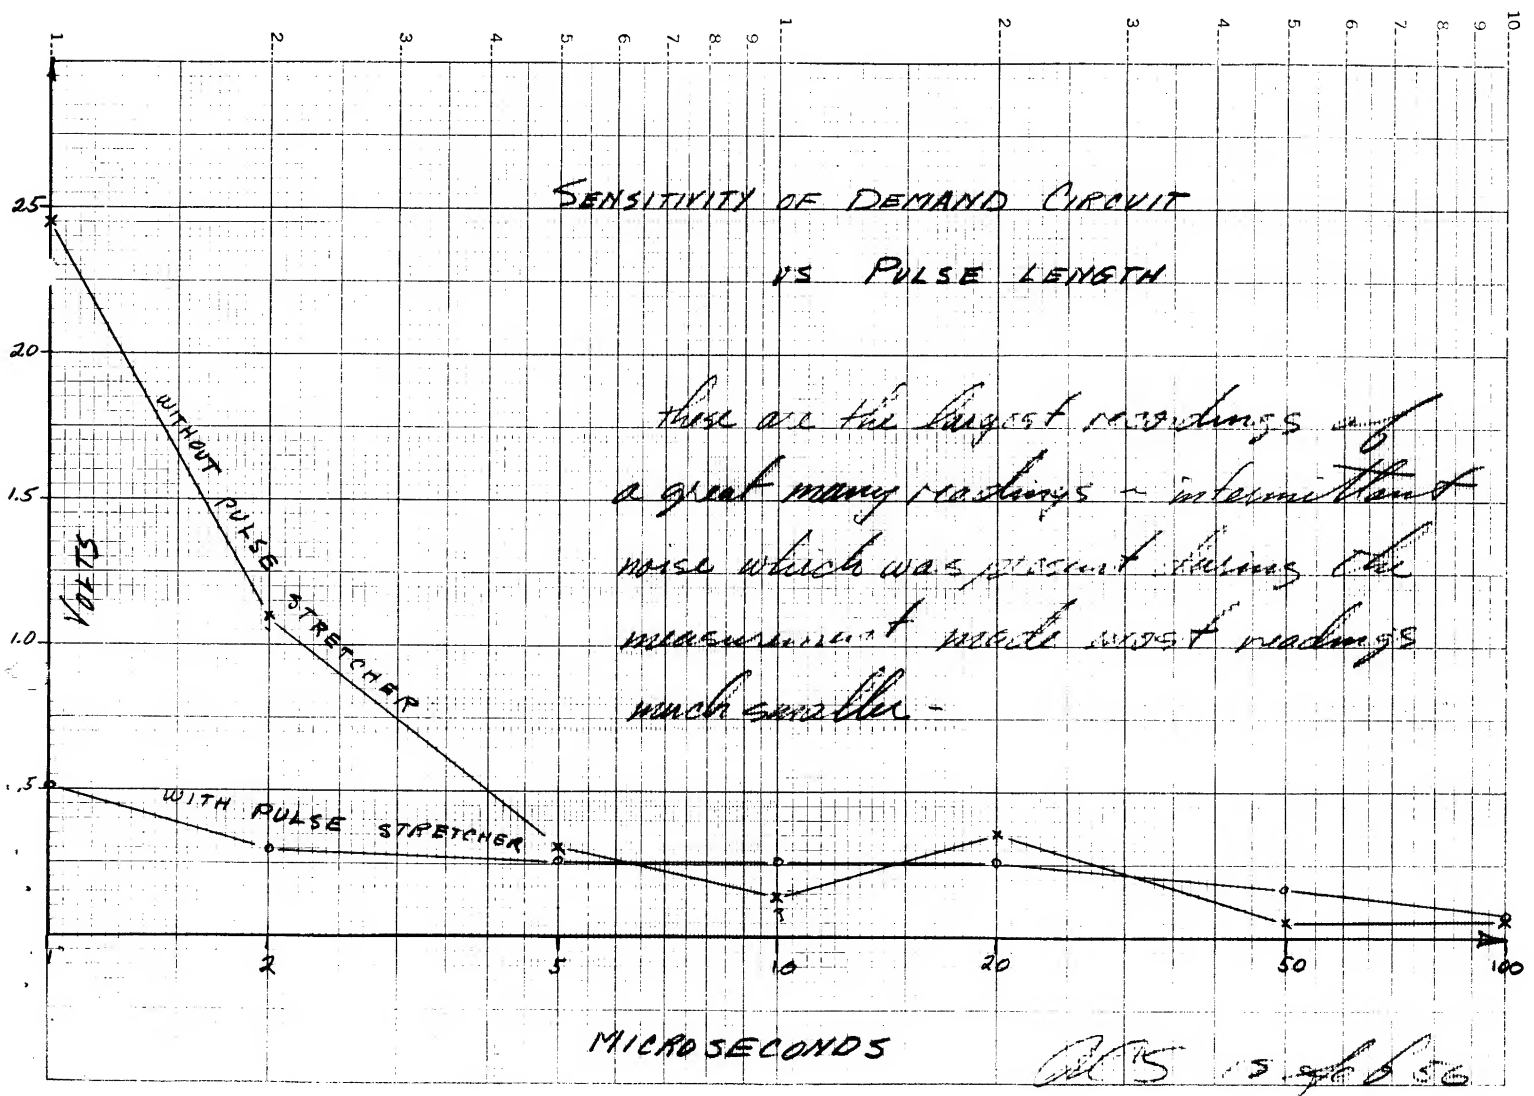 1 2 3 4 5 6 7 8 9 1 2 3 4 5 6 7 8 9 10
SENSITIVITY OF DEMAND CIRCUIT
VS PULSE LENGTH
these are the largest recordings of
a great many readings - intermittant
noise which was present during the
measurement made most readings
much smaller -
25
20
1.5
1.0
.5
VOLTS
WITHOUT PULSE STRETCHER
WITH PULSE STRETCHER
?
1 2 5 10 20 50 100
MICROSECONDS
56